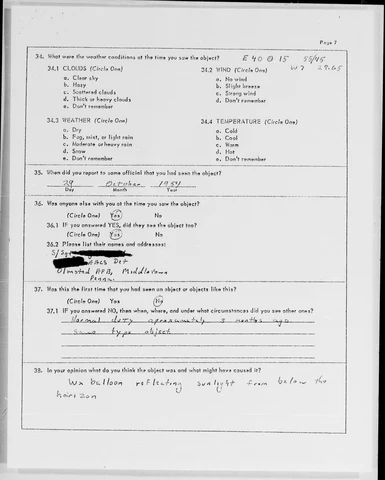 Page 7
34. What were the weather conditions at the time you saw the object? E 40 @ 15 55/45
34.1 CLOUDS (Circle One) 34.2 WIND (Circle One) W 7 29.65
a. Clear sky a. No wind
b. Hazy b. Slight breeze
c. Scattered clouds c. Strong wind
d. Thick or heavy clouds d. Don't remember
e. Don't remember
34.3 WEATHER (Circle One) 34.4 TEMPERATURE (Circle One)
a. Dry a. Cold
b. Fog, mist, or light rain b. Cool
c. Moderate or heavy rain c. Warm
d. Snow d. Hot
e. Don't remember e. Don't remember
35. When did you report to some official that you had seen the object?
29 October 1954
Day Month Year
36. Was anyone else with you at the time you saw the object?
(Circle One) Yes No
36.1 IF you answered YES, did they see the object too?
(Circle One) Yes No
36.2 Please list their names and addresses:
S/Sgt
AACS Det
Olmsted AFB, Middletown
Penna
37. Was this the first time that you had seen an object or objects like this?
(Circle One) Yes No
37.1 IF you answered NO, then when, where, and under what circumstances did you see other ones?
Normal duty approximately 3 months ago
same type object
38. In your opinion what do you think the object was and what might have caused it?
Wx balloon reflecting sunlight from below the
horizon